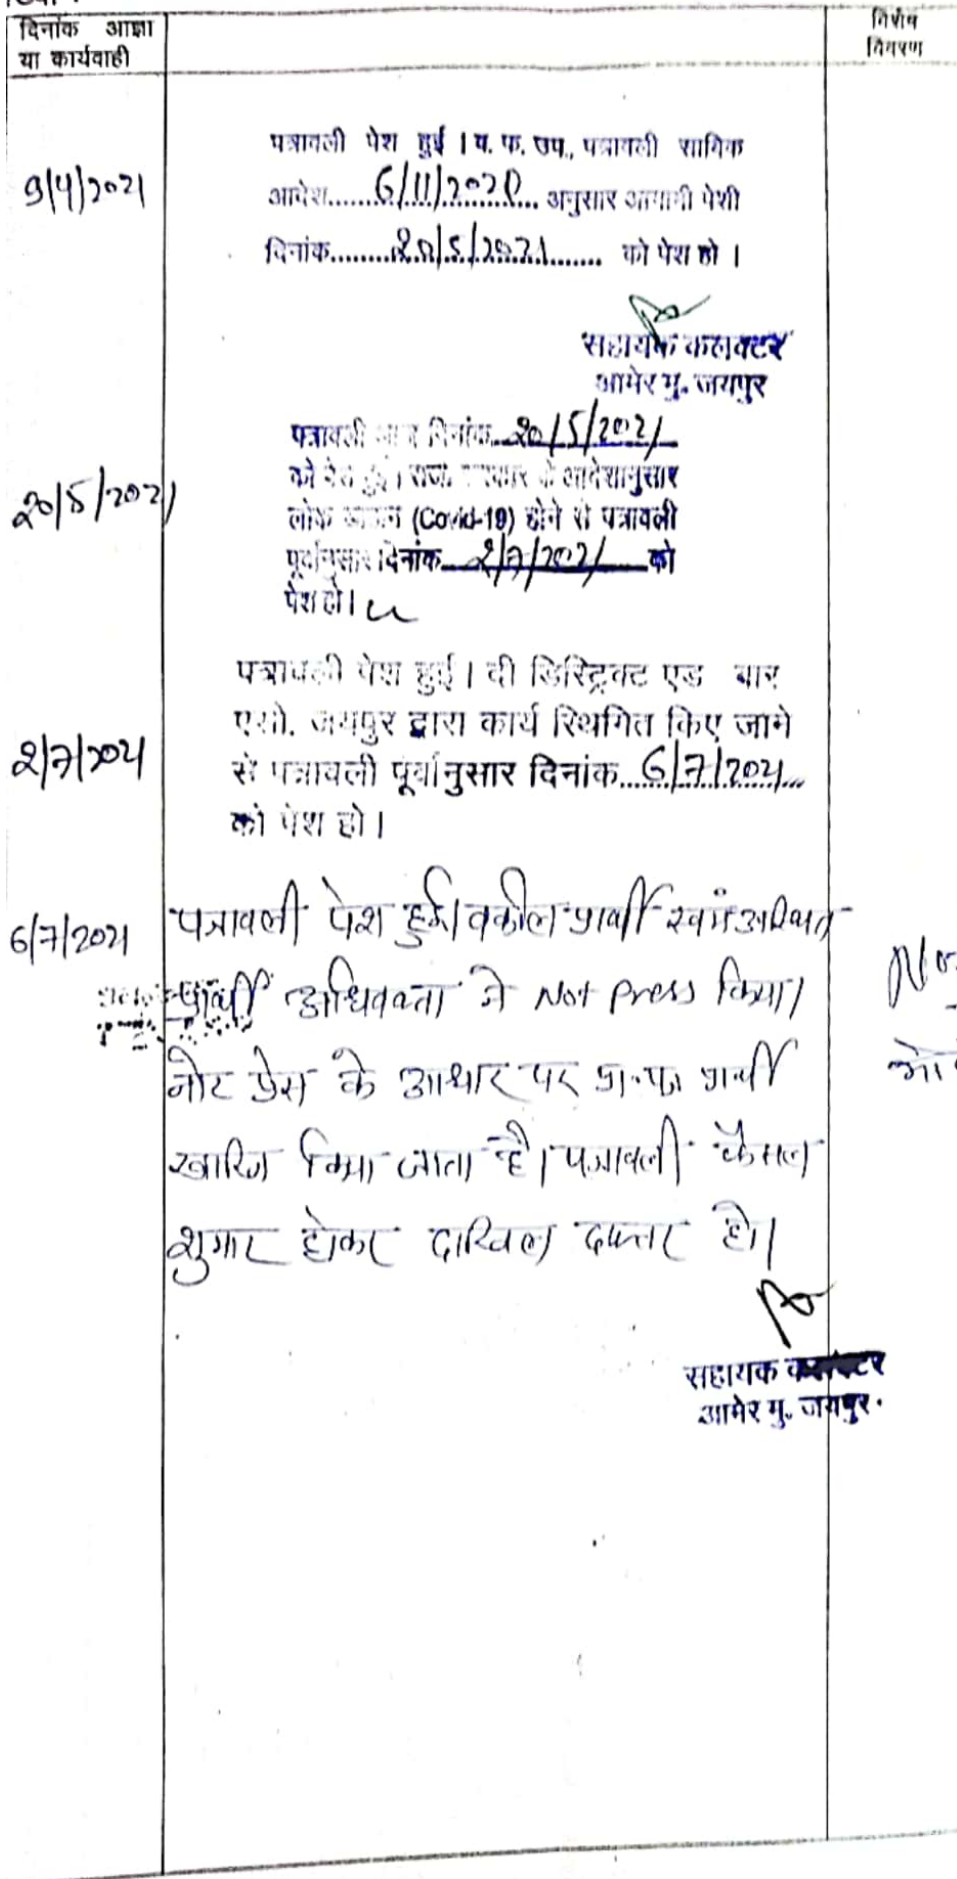 दिनांक आज्ञा
या कार्यवाही
विशेष
विवरण
9/4/2021
पत्रावली पेश हुई । व. फ. उप., पत्रावली साबिक
आदेश......6/11/2020...... अनुसार आगामी पेशी
दिनांक......20/5/2021...... को पेश हो ।
सहायक कलक्टर
आमेर मु. जयपुर
20/5/2021
पत्रावली आज दिनांक 20/5/2021
को पेश हुई। राज. सरकार के आदेशानुसार
लोक डाउन (Covid-19) होने से पत्रावली
पूर्वानुसार दिनांक 2/7/2021 को
पेश हो।
2/7/2021
पत्रावली पेश हुई। दी डिस्ट्रिक्ट एड बार
एसो. जयपुर द्वारा कार्य स्थिगित किए जाने
से पत्रावली पूर्वानुसार दिनांक...6/7/2021...
को पेश हो।
6/7/2021
पत्रावली पेश हुई। वकील प्रार्थी स्वयं उपस्थित
प्रार्थी अधिवक्ता ने Not Press किया।
नोट प्रेस के आधार पर प्रा.पत्र प्रार्थी
खारिज किया जाता है। पत्रावली फैसल
शुमार होकर दाखिल दफ्तर हो।
सहायक कलक्टर
आमेर मु. जयपुर.